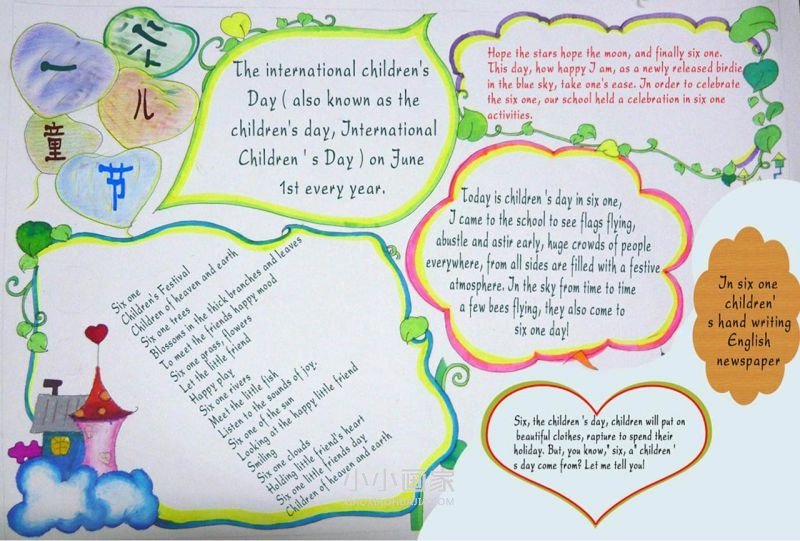 六
一
儿
童
节
The international children's
Day ( also known as the
children's day, International
Children ' s Day ) on June
1st every year.
Hope the stars hope the moon, and finally six one.
This day, how happy I am, as a newly released birdie
in the blue sky, take one's ease. In order to celebrate
the six one, our school held a celebration in six one
activities.
Today is children 's day in six one,
I came to the school to see flags flying,
abustle and astir early, huge crowds of people
everywhere, from all sides are filled with a festive
atmosphere. In the sky from time to time
a few bees flying, they also come to
six one day!
Six one
Children's Festival
Children of heaven and earth
Six one trees
Blossoms in the thick branches and leaves
To meet the friends happy mood
Six one grass, flowers
Let the little friend
Happy play
Six one rivers
Meet the little fish
Listen to the sounds of joy.
Six one of the sun
Looking at the happy little friend
Smiling
Six one clouds
Holding little friend's heart
Six one little friends day
Children of heaven and earth
In six one
children'
s hand writing
English
newspaper
Six, the children 's day, children will put on
beautiful clothes, rapture to spend their
holiday. But, you know," six, a" children '
s day come from? Let me tell you!
小小画家